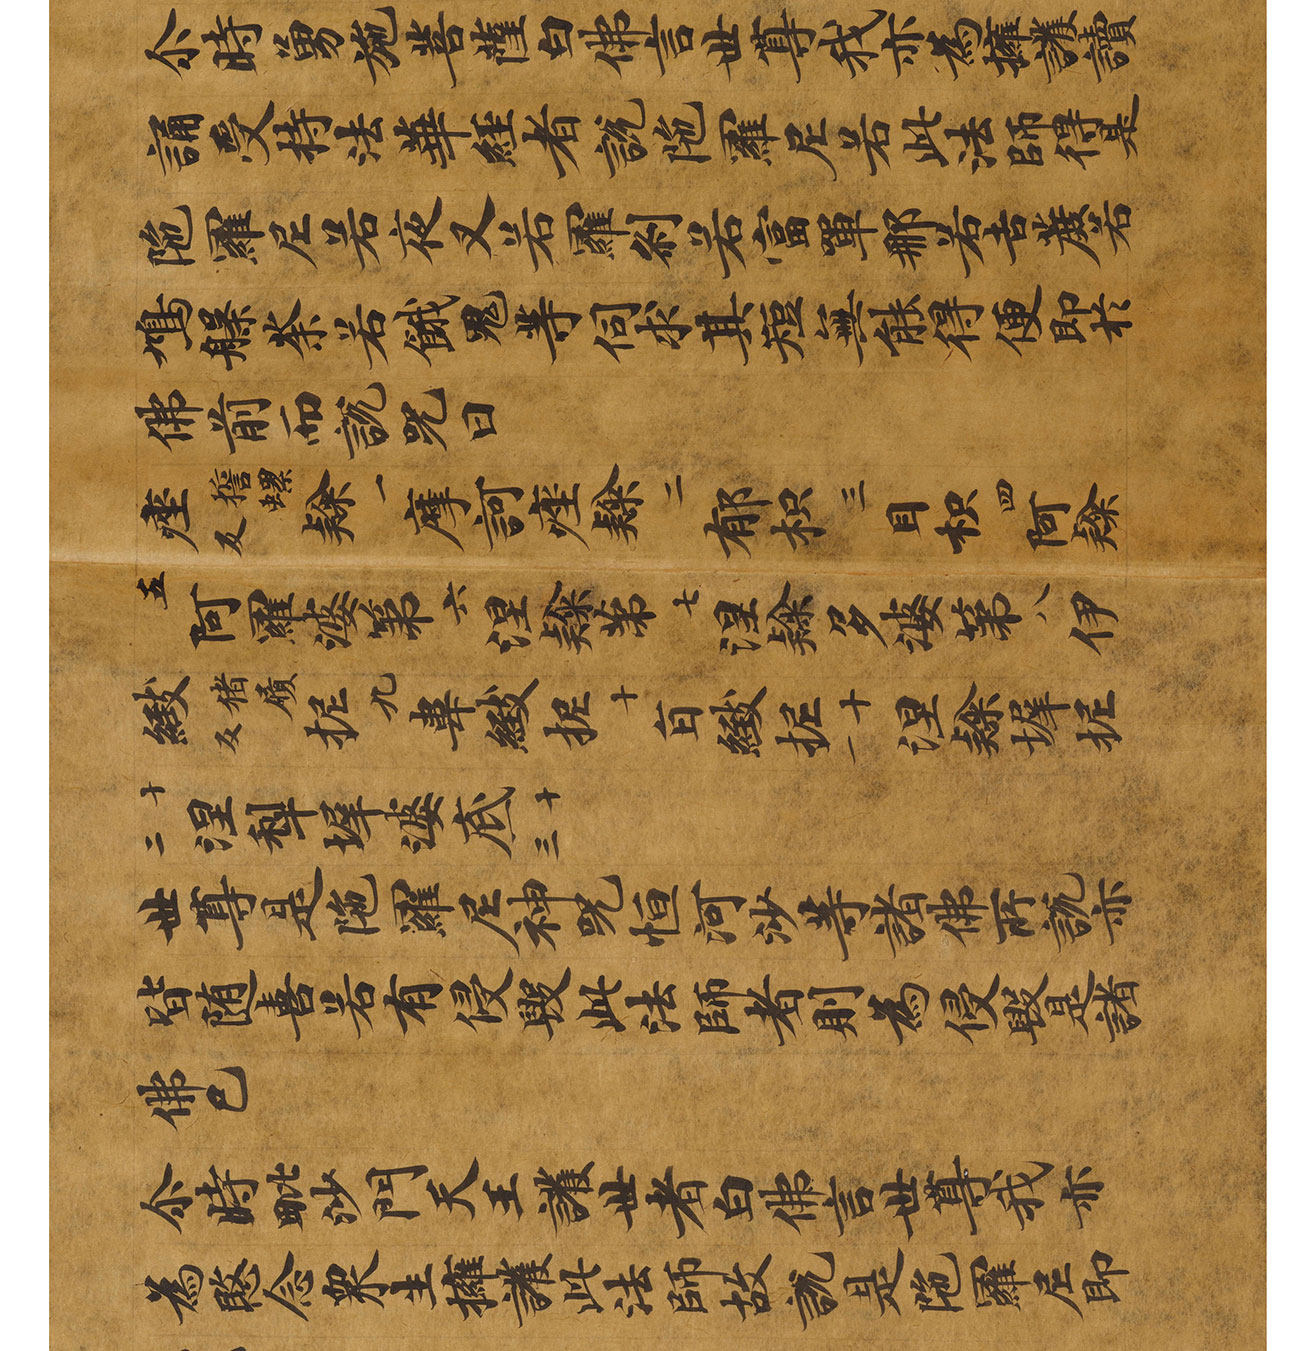 尒時勇施菩薩白佛言世尊我亦為擁護讀
誦受持法華經者說陁羅尼若此法師得是
陁羅尼若夜叉若羅刹若富單那若吉蔗若
鳩槃茶若餓鬼等伺求其短無能得便即於
佛前而說呪曰
痤誓螺反隸一摩訶痤隸二郁枳三目枳四阿隸
五阿羅婆第六涅隸第七涅隸多婆第八伊
緻猪履反抳九韋緻抳十旨緻抳十一涅隸墀抳
十二涅犁墀婆底十三
世尊是陁羅尼神呪恒河沙等諸佛所說亦
皆隨喜若有侵毀此法師者則為侵毀是諸
佛已
尒時毗沙門天王護世者白佛言世尊我亦
為愍念衆生擁護此法師故說是陁羅尼即